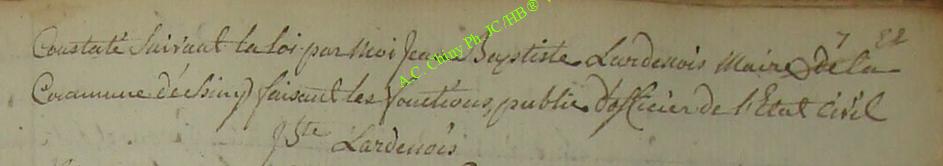 7 82
Constaté Suivant la loi par moi Jean Baptiste Lardenois Maire de la
Commune déchiny faisant les fonctions, public d'officier de l'Etat Civil
JBte Lardenois
A.C. Chiny Ph. JC/HB®